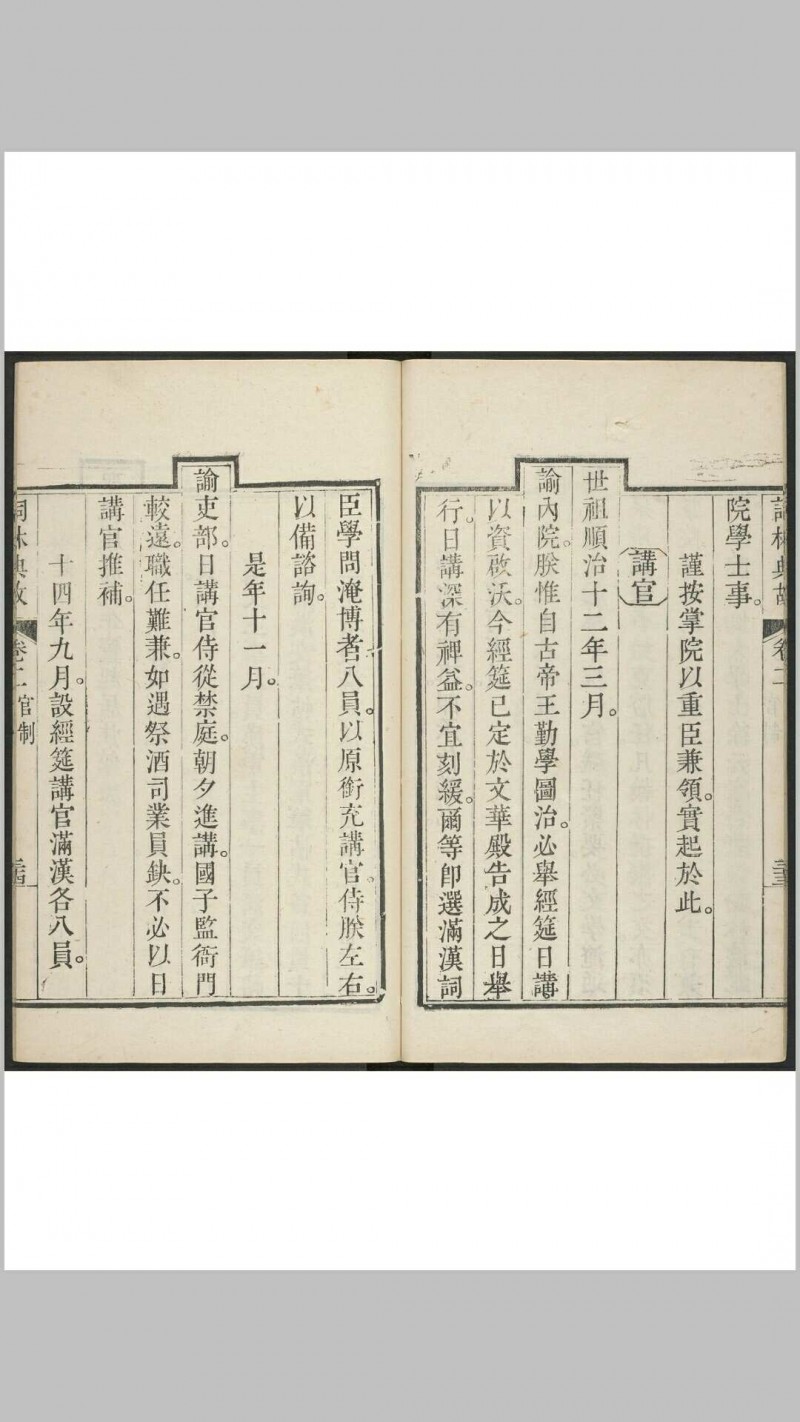 詞林典故 卷二
院學士事。
謹按掌院以重臣兼領。實起於此。
講官
世祖順治十二年三月。
諭內院。朕惟自古帝王勤學圖治。必舉經筵日講
以資啟沃。今經筵已定於文華殿告成之日舉
行。日講深有裨益。不宜刻緩。爾等即選滿漢詞
臣學問淹博者八員。以原銜充講官。侍朕左右。
以備諮詢。
是年十一月。
諭吏部。日講官侍從禁庭。朝夕進講。國子監衙門
較遠。職任難兼。如遇祭酒司業員缺。不必以日
講官推補。
十四年九月。設經筵講官滿漢各八員。
詞林典故 卷二 官制